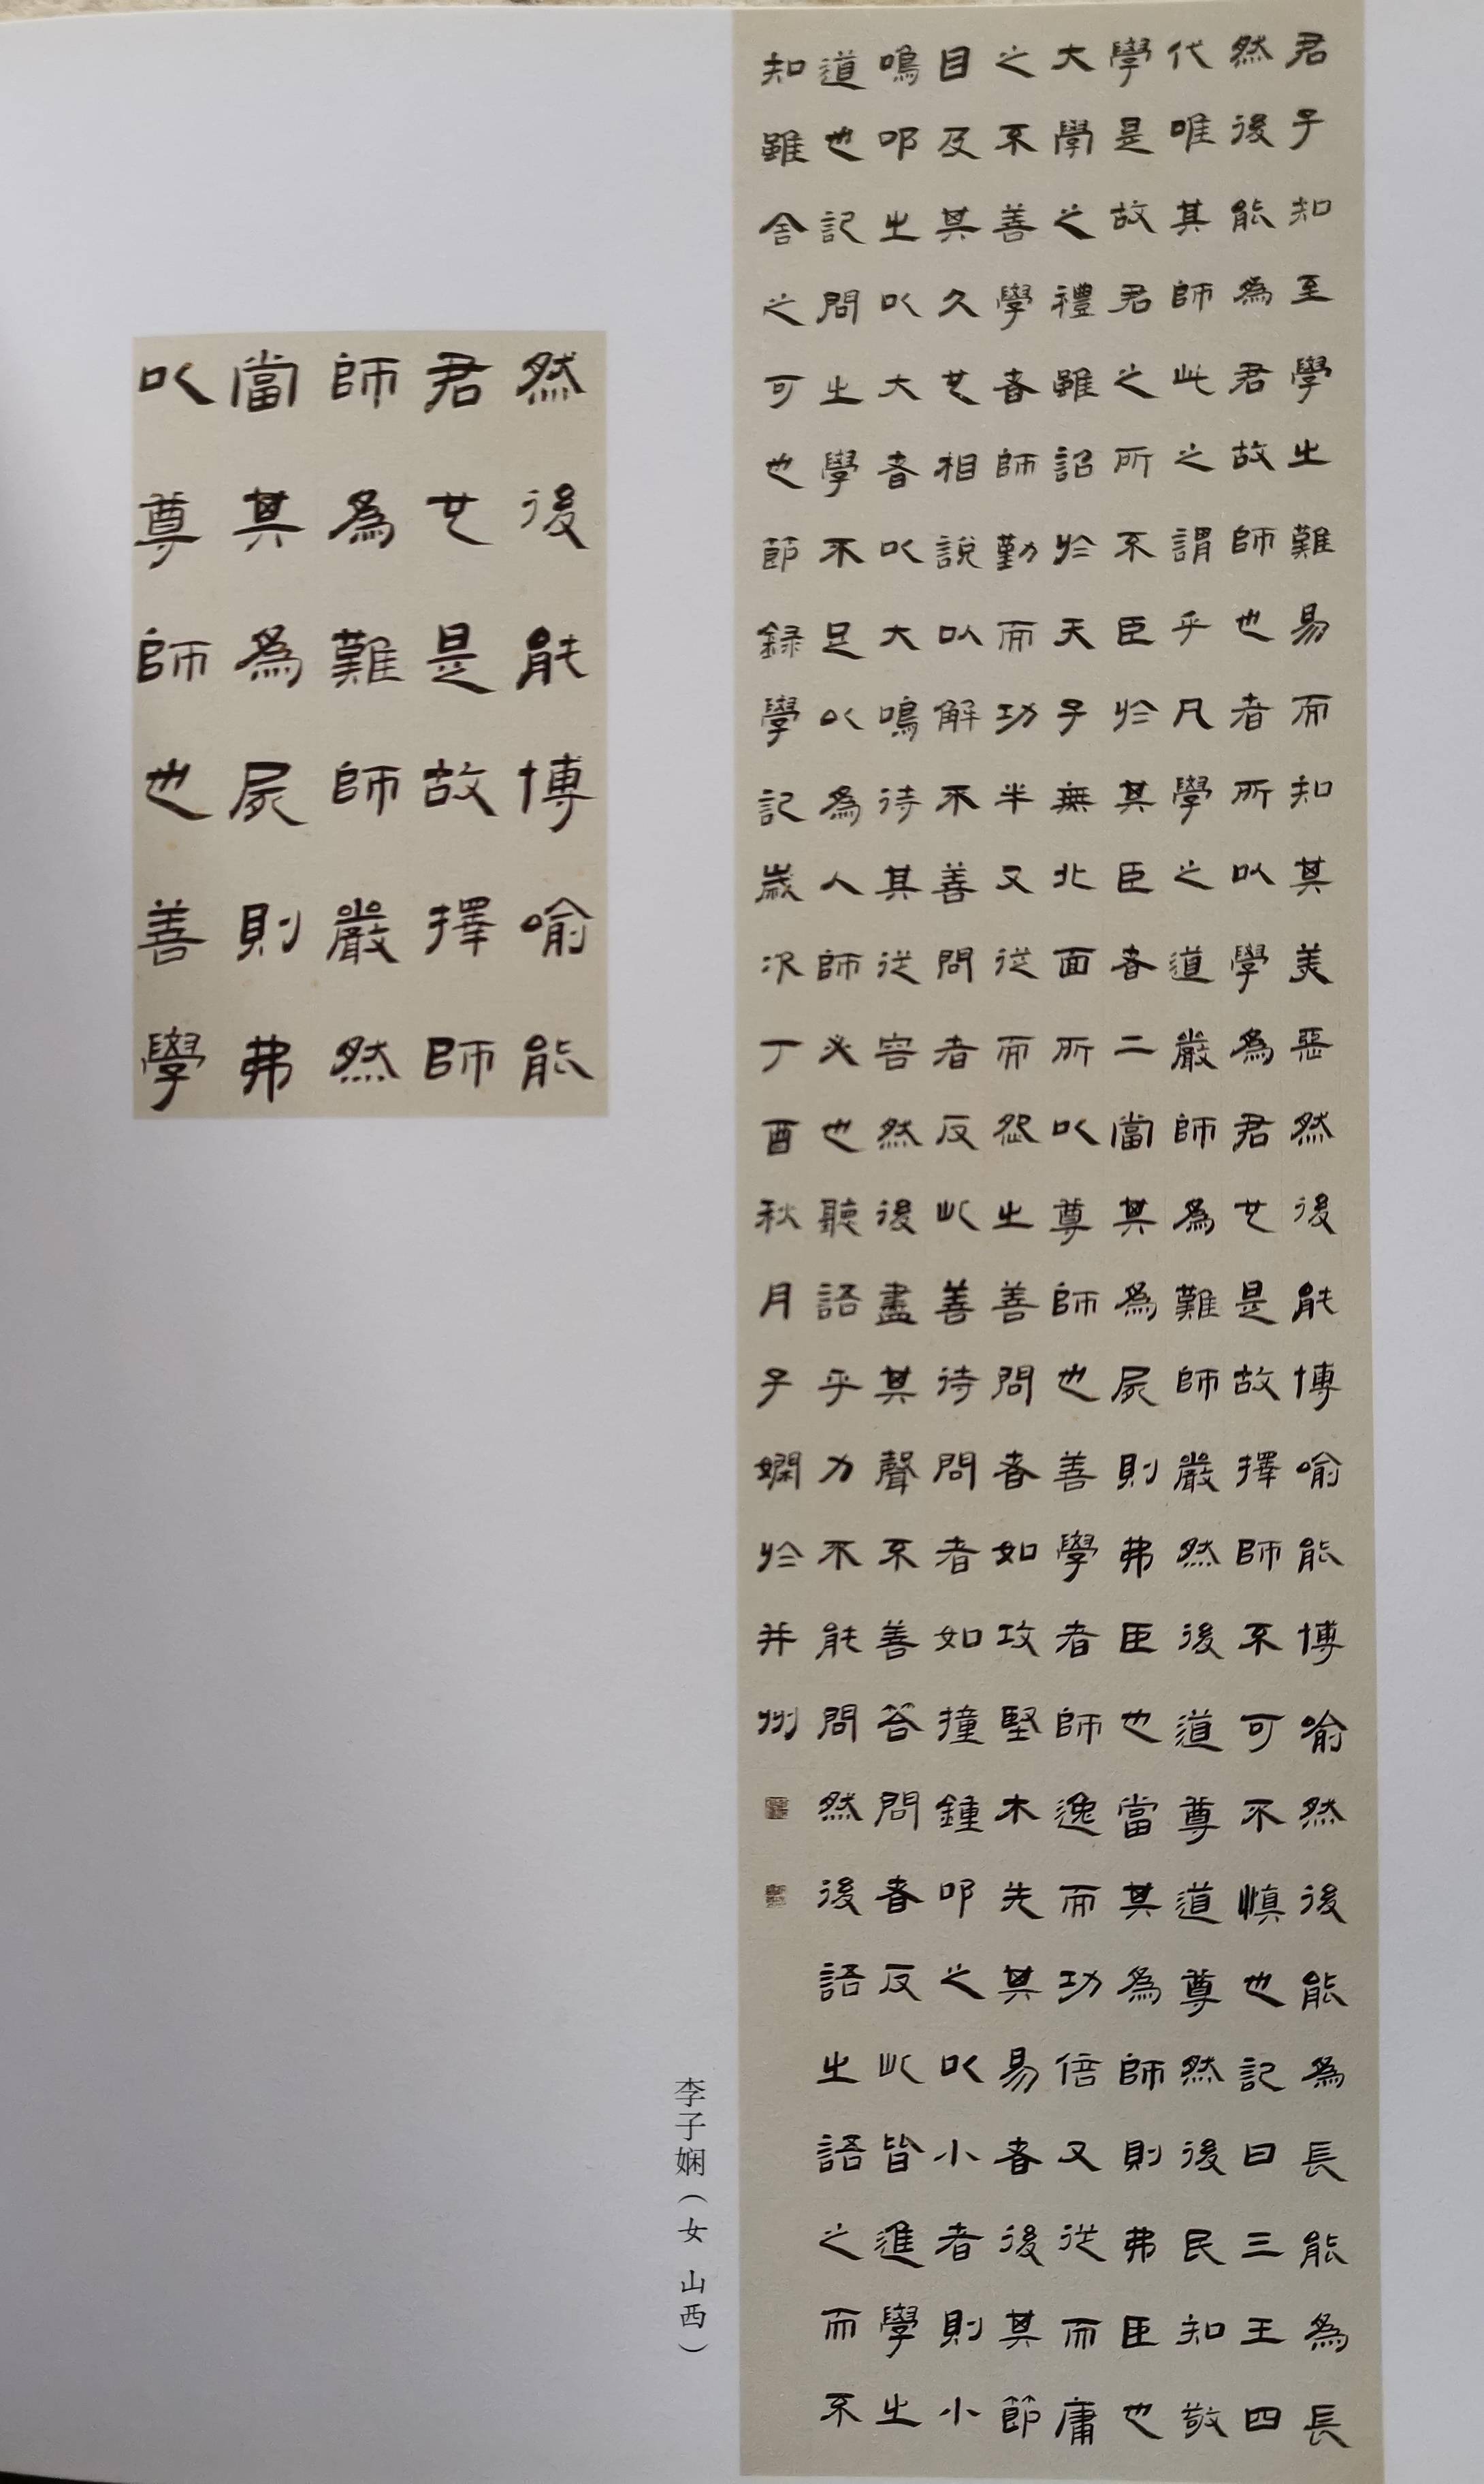 君子知至學之難易而知其美惡然後能博喻能博喻然後能為長能為長
然後能為君故師也者所以學為君也是故擇師不可不慎也記曰三王四
代唯其師此之謂乎凡學之道嚴師為難師嚴然後道尊道尊然後民知敬
學是故君之所不臣於其臣者二當其為屍則弗臣也當其為師則弗臣也
大學之禮雖詔於天子無北面所以尊師也善學者師逸而功倍又從而庸
之不善學者師勤而功半又從而怨之善問者如攻堅木先其易者後其節
目及其久也相說以解不善問者反此善待問者如撞鐘叩之以小者則小
鳴叩之以大者以大鳴待其從容然後盡其聲不善答問者反此皆進學之
道也記問之學不足以為人師必也聽語乎力不能問然後語之語之而不
知雖舍之可也節録學記歲次丁酉秋月子嫻於并州
李子娴（女 山西）
然後能博喻能
君也是故擇師
師為難師嚴然
當其為屍則弗
以尊師也善學